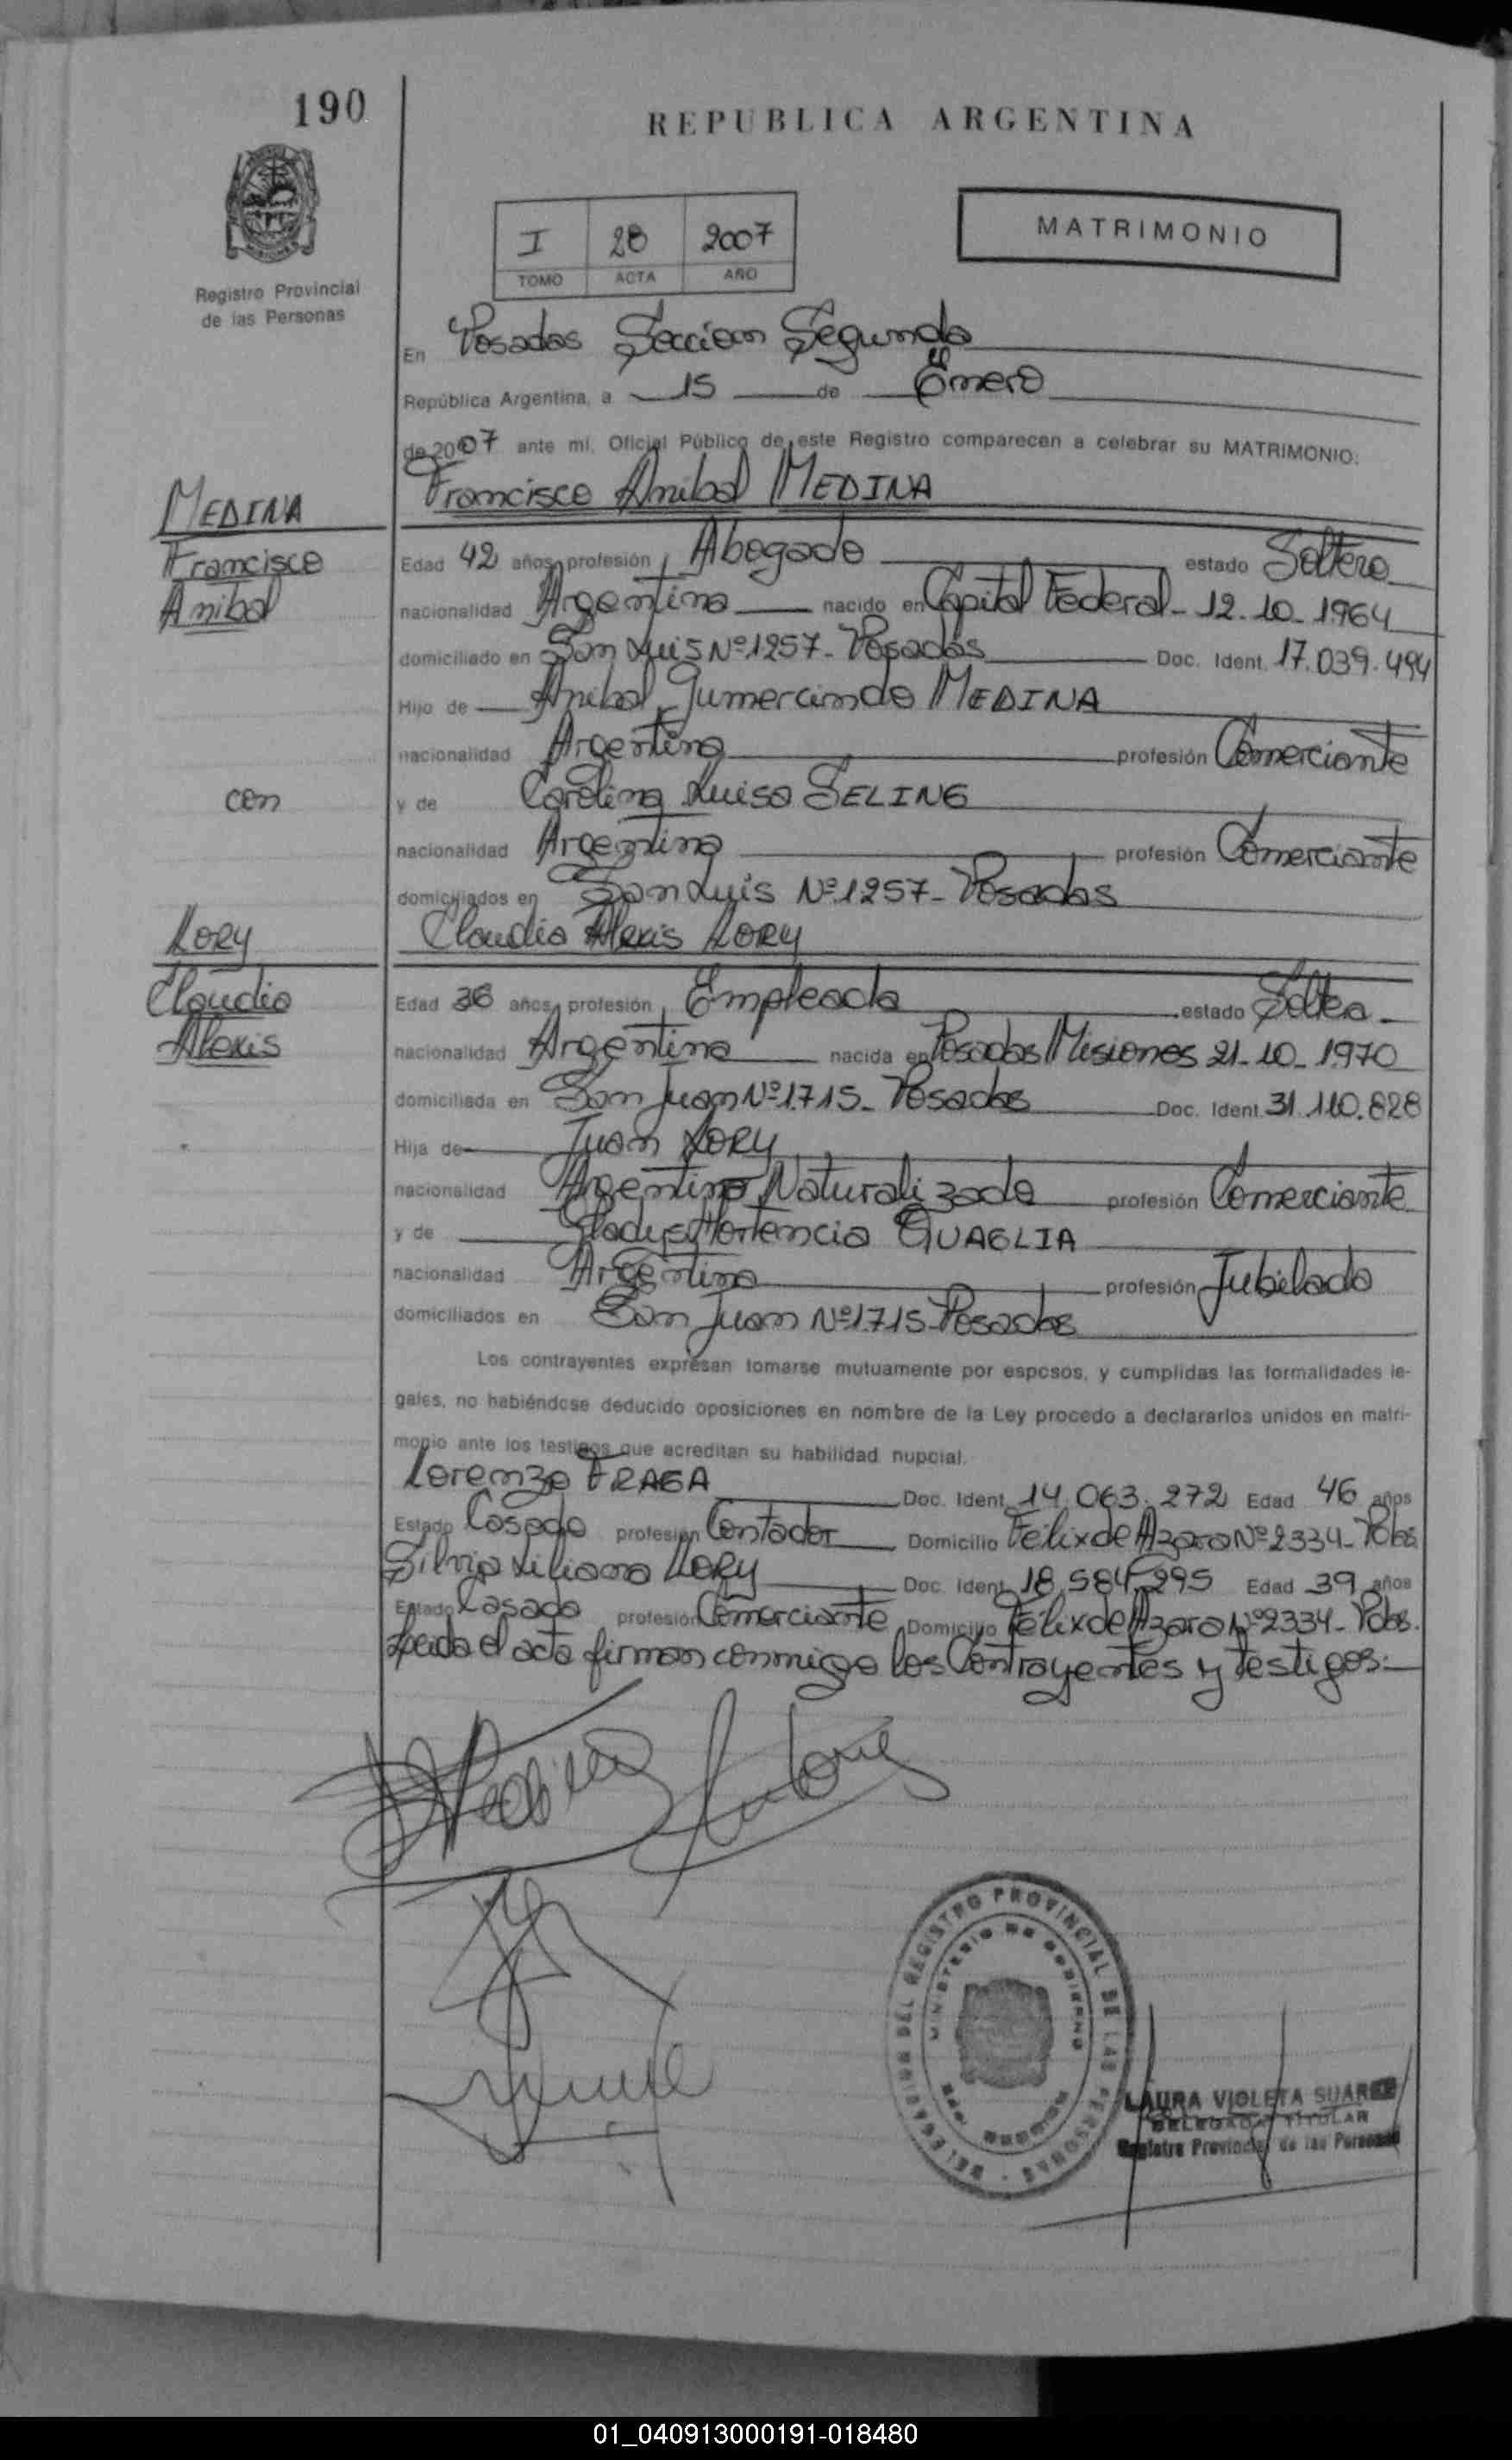 190
REPUBLICA ARGENTINA
I 28 2007
TOMO ACTA AÑO
MATRIMONIO
Registro Provincial
de las Personas
En Posadas Seccion Segunda
República Argentina, a 15 de Enero
de 2007 ante mí, Oficial Público de este Registro comparecen a celebrar su MATRIMONIO:
MEDINA
Francisco Anibal MEDINA
Francisco
Anibal
Edad 42 años, profesión Abogado estado Soltero
nacionalidad Argentina nacido en Capital Federal - 12-10-1964
domiciliado en San Luis Nº 1257 - Posadas Doc. Ident. 17.039.494
Hijo de Anibal Gumercindo MEDINA
nacionalidad Argentina profesión Comerciante
con
y de Carolina Luisa SELING
nacionalidad Argentina profesión Comerciante
domiciliados en San Luis Nº 1257 - Posadas
LORY
Claudia Alexis LORY
Claudia
Alexis
Edad 36 años, profesión Empleada estado Soltera
nacionalidad Argentina nacida en Posadas Misiones 21-10-1970
domiciliada en San Juan Nº 1715 - Posadas Doc. Ident. 31.110.828
Hija de Juan LORY
nacionalidad Argentino Naturalizado profesión Comerciante
y de Gladys Hortencia QUAGLIA
nacionalidad Argentina profesión Jubilada
domiciliados en San Juan Nº 1715 - Posadas
Los contrayentes expresan tomarse mutuamente por esposos, y cumplidas las formalidades le-
gales, no habiéndose deducido oposiciones en nombre de la Ley procedo a declararlos unidos en matri-
monio ante los testigos que acreditan su habilidad nupcial.
Lorenzo FRAGA Doc. Ident. 14.063.272 Edad 46 años
Estado Casado profesión Contador Domicilio Félix de Azara Nº 2334 - Pdas
Silvia Liliana LORY Doc. Ident. 18.584.295 Edad 39 años
Estado Casada profesión Comerciante Domicilio Félix de Azara Nº 2334 - Pdas.
Leida el acta firman conmigo los Contrayentes y testigos:
DEL REGISTRO PROVINCIAL DE LAS PERSONAS
MINISTERIO DE GOBIERNO
LAURA VIOLETA SUAREZ
DELEGADA TITULAR
Registro Provincial de las Personas
01_040913000191-018480